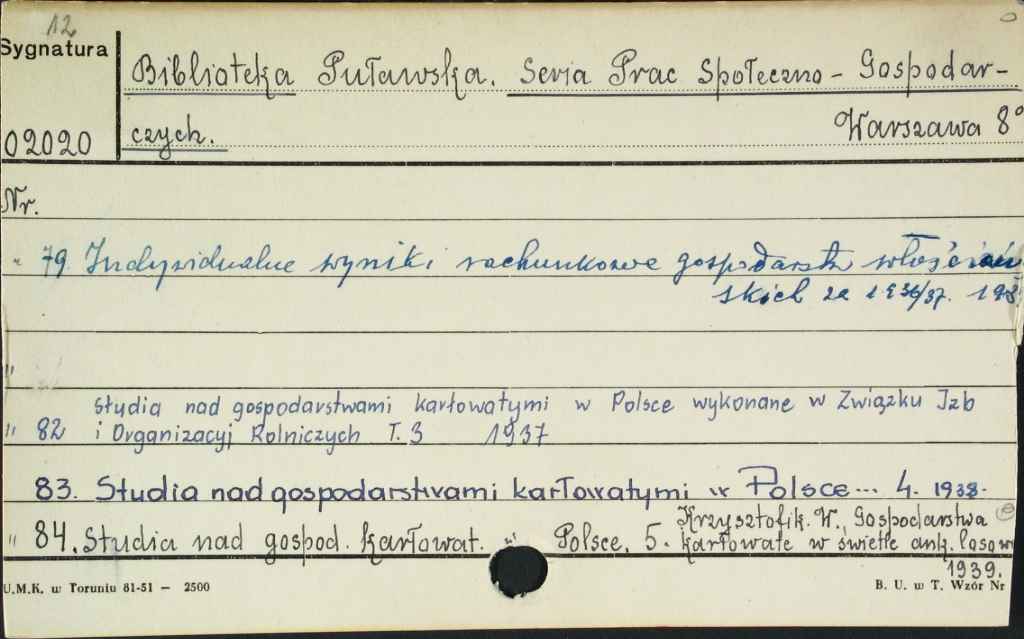 12
Sygnatura
Biblioteka Puławska. Serja Prac Społeczno - Gospodar-
02020 czych. Warszawa 8°
Nr.
" 79. Indywidualne wyniki rachunkowe gospodarstw włościań
skich za 1936/37.
"
Studia nad gospodarstwami karłowatymi w Polsce wykonane w Związku Izb
" 82 i Organizacyj Rolniczych T. 3 1937
83. Studia nad gospodarstwami karłowatymi w Polsce... 4. 1938.
Krzysztofik. W., Gospodarstwa
" 84. Studia nad gospod. karłowat. w Polsce. 5. karłowate w świetle ank. losow
1939.
U.M.K. w Toruniu 81-51 — 2500 B. U. w T. Wzór Nr